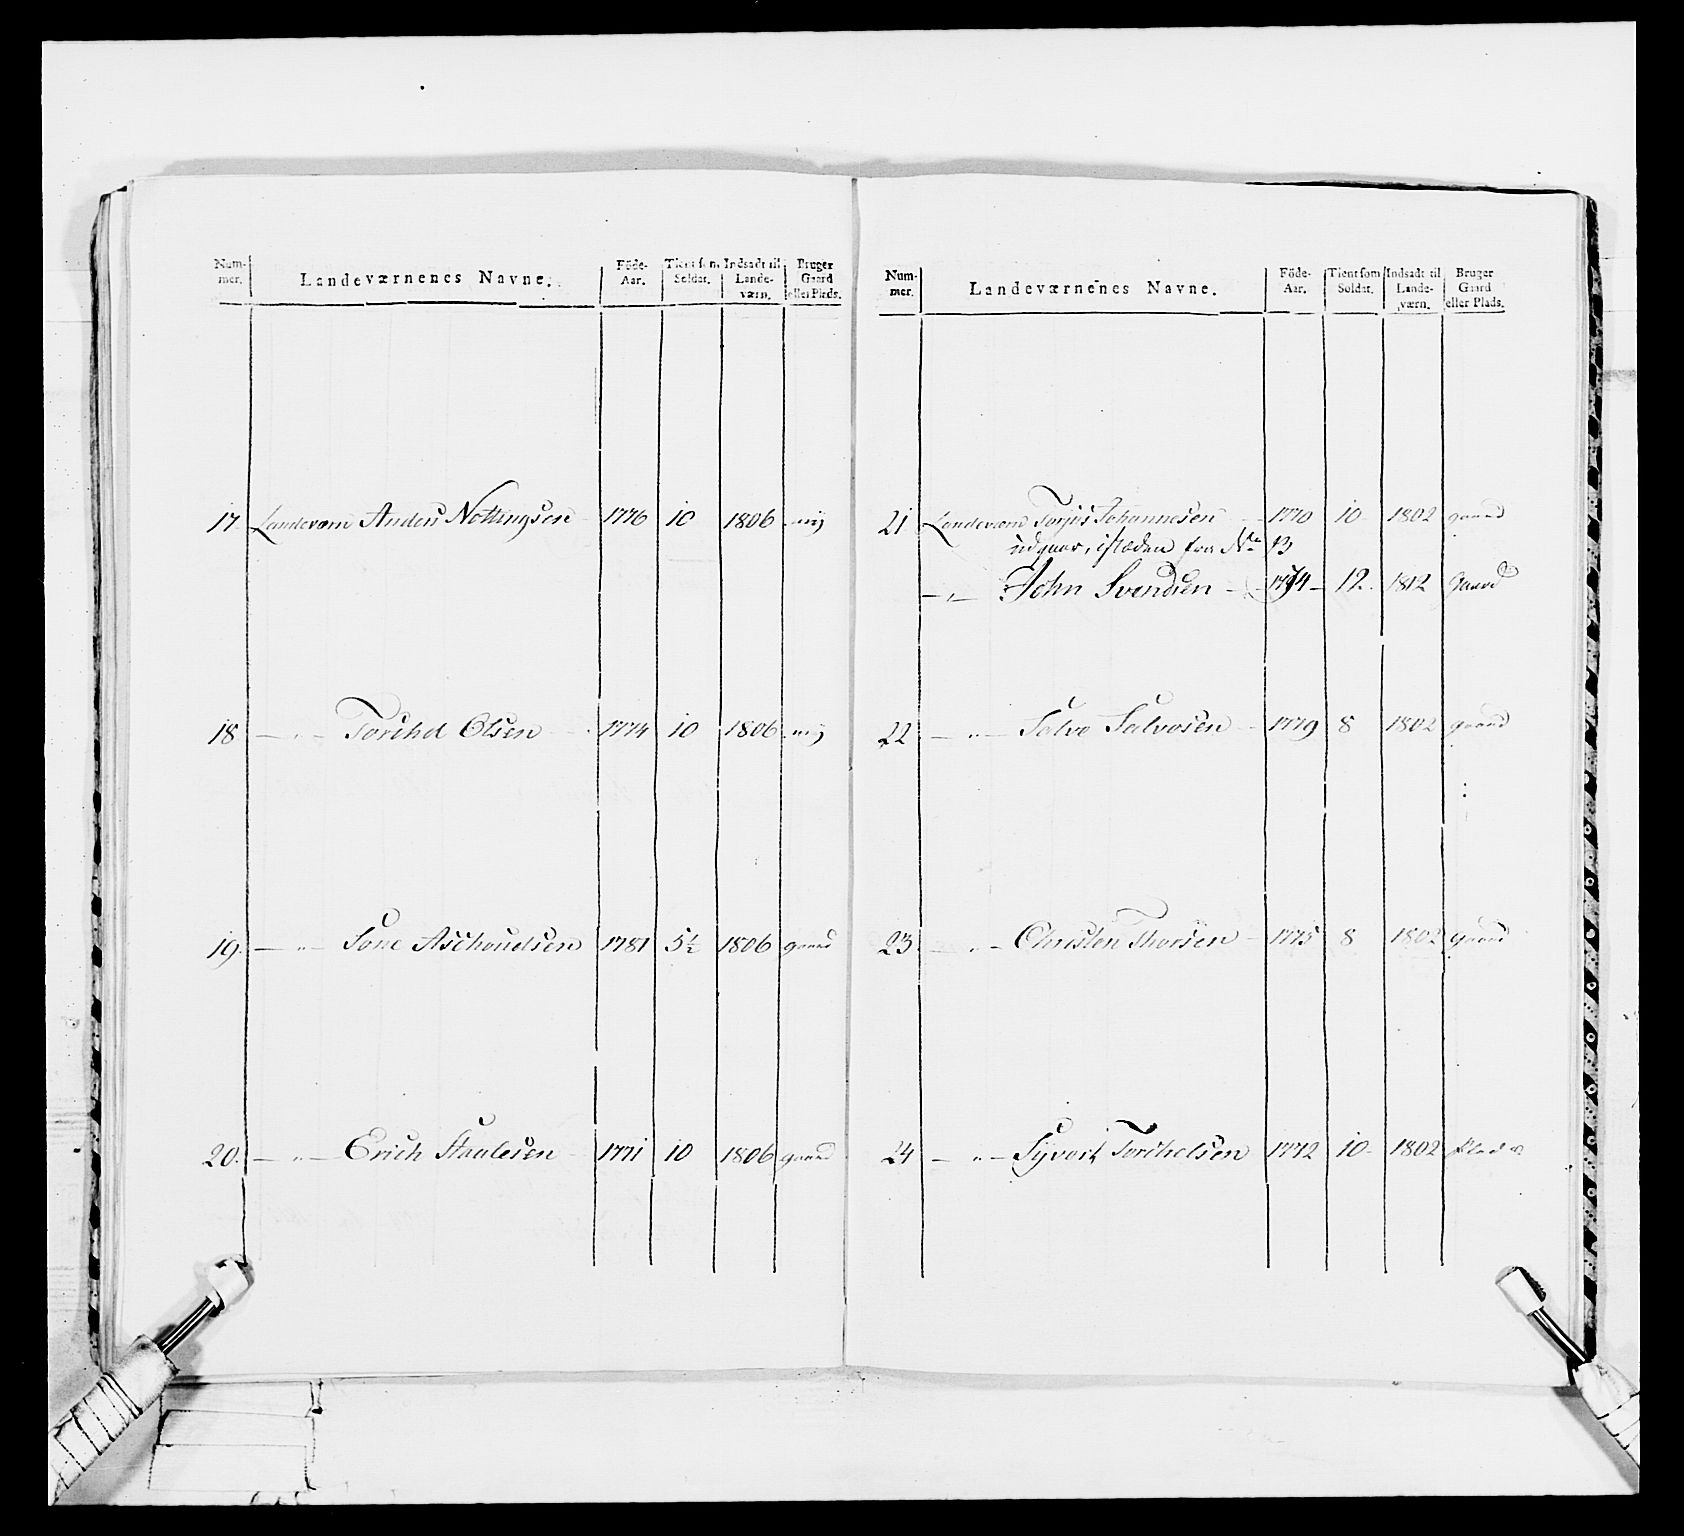 Num-mer. Landeværnenes Navne. Föde-Aar. Tient som Soldat. Indsadt til Lande-værn. Bruger Gaard eller Plads.
17 Landeværn Anders Nottingsen 1776 10 1806 nij
18 — " — Torchel Olsen 1774 10 1806 nij
19. — " — Tone 1781 5½ 1806 gaard
20. — " — Erich Staalesen 1771 10 1806 gaard
Num-mer. Landeværnenes Navne. Föde-Aar. Tient som Soldat. Indsadt til Lande-værn. Bruger Gaard eller Plads.
21 Landeværn Torjus Johannesen 1770 10 1802 gaard
udgaar, isteden fra No 13
— " — John Svendsen 1774 12 1812 Gaard
22 — " — Salve Salvesen 1779 8 1802 gaard
23 — " — Christen Thorsen 1775 8 1802 gaard
24 — " — Syvert Torchelsen 1772 10 1802 Plads